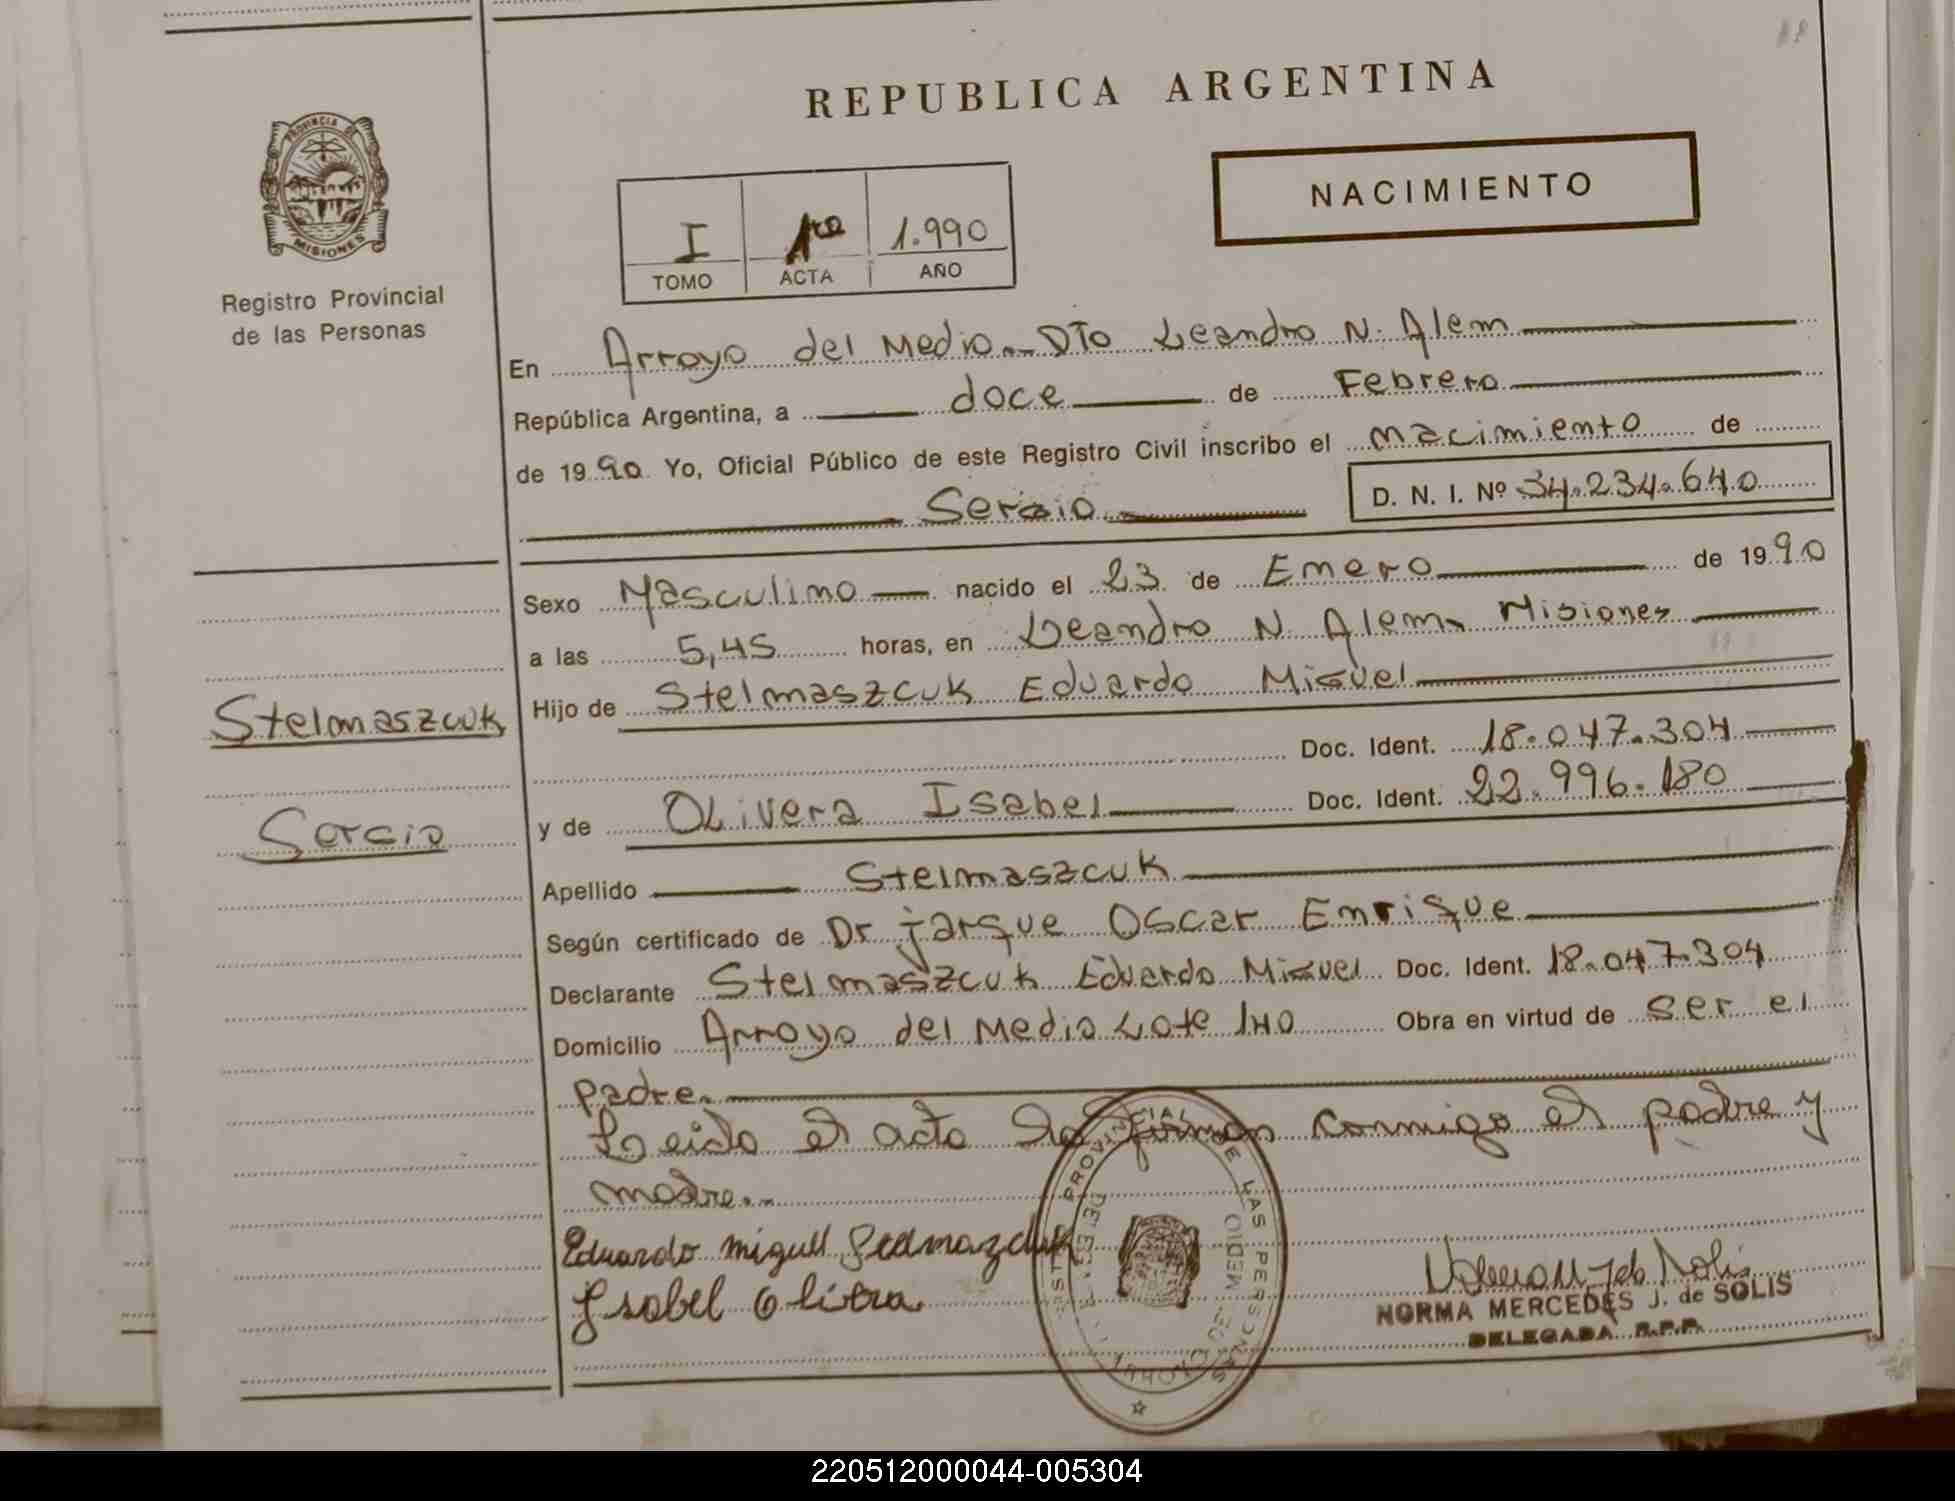 REPUBLICA ARGENTINA
PROVINCIA DE
MISIONES
Registro Provincial
de las Personas
NACIMIENTO
I 1ra 1.990
TOMO ACTA AÑO
En Arroyo del Medio - Dto Leandro N. Alem
República Argentina, a doce de Febrero
de 1990 Yo, Oficial Público de este Registro Civil inscribo el nacimiento de
Sergio D. N. I. Nº 34.234.640
Sexo Masculino nacido el 23 de Enero de 1990
a las 5,45 horas, en Leandro N. Alem - Misiones
Hijo de Stelmaszcuk Eduardo Miguel
Doc. Ident. 18.047.304
y de Olivera Isabel Doc. Ident. 22.996.180
Apellido Stelmaszcuk
Según certificado de Dr jarque Oscar Enrique
Declarante Stelmaszcuk Eduardo Miguel Doc. Ident. 18.047.304
Domicilio Arroyo del Medio Lote 140 Obra en virtud de ser el
padre.
Leido el acta la firman conmigo el padre y
madre.
Stelmaszcuk
Sergio
Eduardo Miguel
Isabel Olivera
NORMA MERCEDES J. de SOLIS
DELEGADA R.P.P.
220512000044-005304